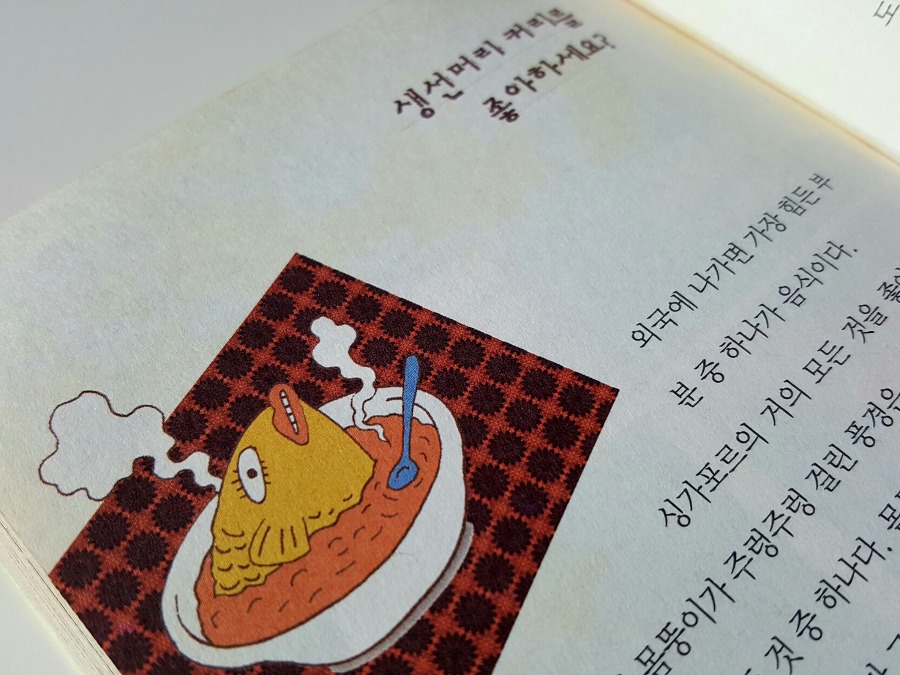 생선머리 커리를
좋아하세요?
외국에 나가면 가장 힘든 부
분 중 하나가 음식이다.
싱가포르의 거의 모든 것을
몸뚱이가 주렁주렁 걸린 풍경은
것 중 하나다.
도